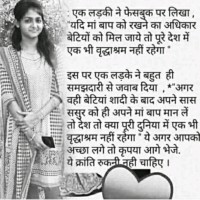 एक लड़की ने फेसबुक पर लिखा ,
"यदि मां बाप को रखने का अधिकार
बेटियों को मिल जाये तो पूरे देश में
एक भी वृद्धाश्रम नहीं रहेगा "
इस पर एक लड़के ने बहुत ही
समझदारी से जवाब दिया , *"अगर
वही बेटियां शादी के बाद अपने सास
ससुर को ही अपने मां बाप मान लें
तो देश तो क्या पूरी दुनिया में एक भी
वृद्धाश्रम नहीं रहेगा " ये अगर आपको
अच्छा लगे तो कृपया आगे भेजे.
ये क्रांति रुकनी नही चाहिए ।